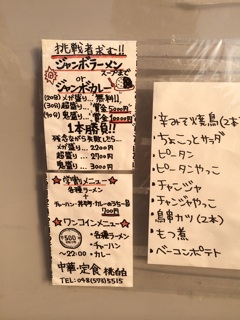 挑戦者求む!!
ジャンボラーメン
スープまで
or
ジャンボカレー
(20分)メガ盛り…無料!!,
(30分)超盛り…賞金5000円
(40分)鬼盛り…賞金10000円
1本勝負!!
残念ながら失敗したら…
メガ盛り…2200円
超盛り…2700円
鬼盛り…3000円
☆学割りメニュー☆
各種ラーメン
+
チャーハン・丼・カレーのうち一品
700円
☆ワンコインメニュー☆
¥500
・各種ラーメン
・チャーハン
〜22:00
・カレー
中華・定食 桃白
TEL:048(578)5515
・辛みそ焼鳥(2本)
・ちょこっとサラダ
・ピータン
・ピータンやっこ
・チャンジャ
・チャンジャやっこ
・鳥串カツ(2本)
・もつ煮
・ベーコンポテト